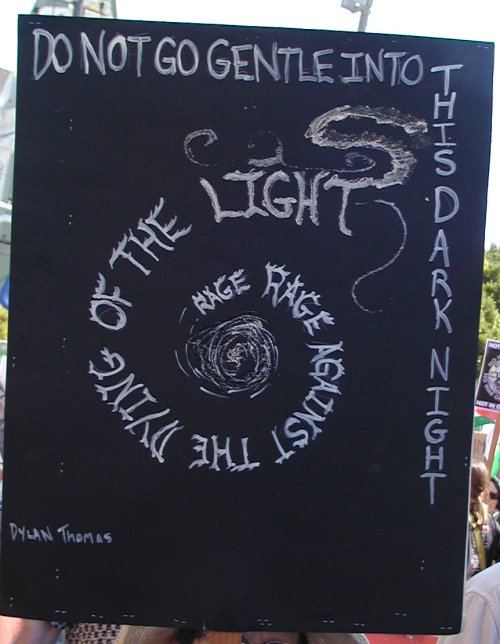 DO NOT GO GENTLE INTO
THIS DARK NIGHT
RAGE RAGE AGAINST THE DYING OF THE
LIGHT
DYLAN THOMAS